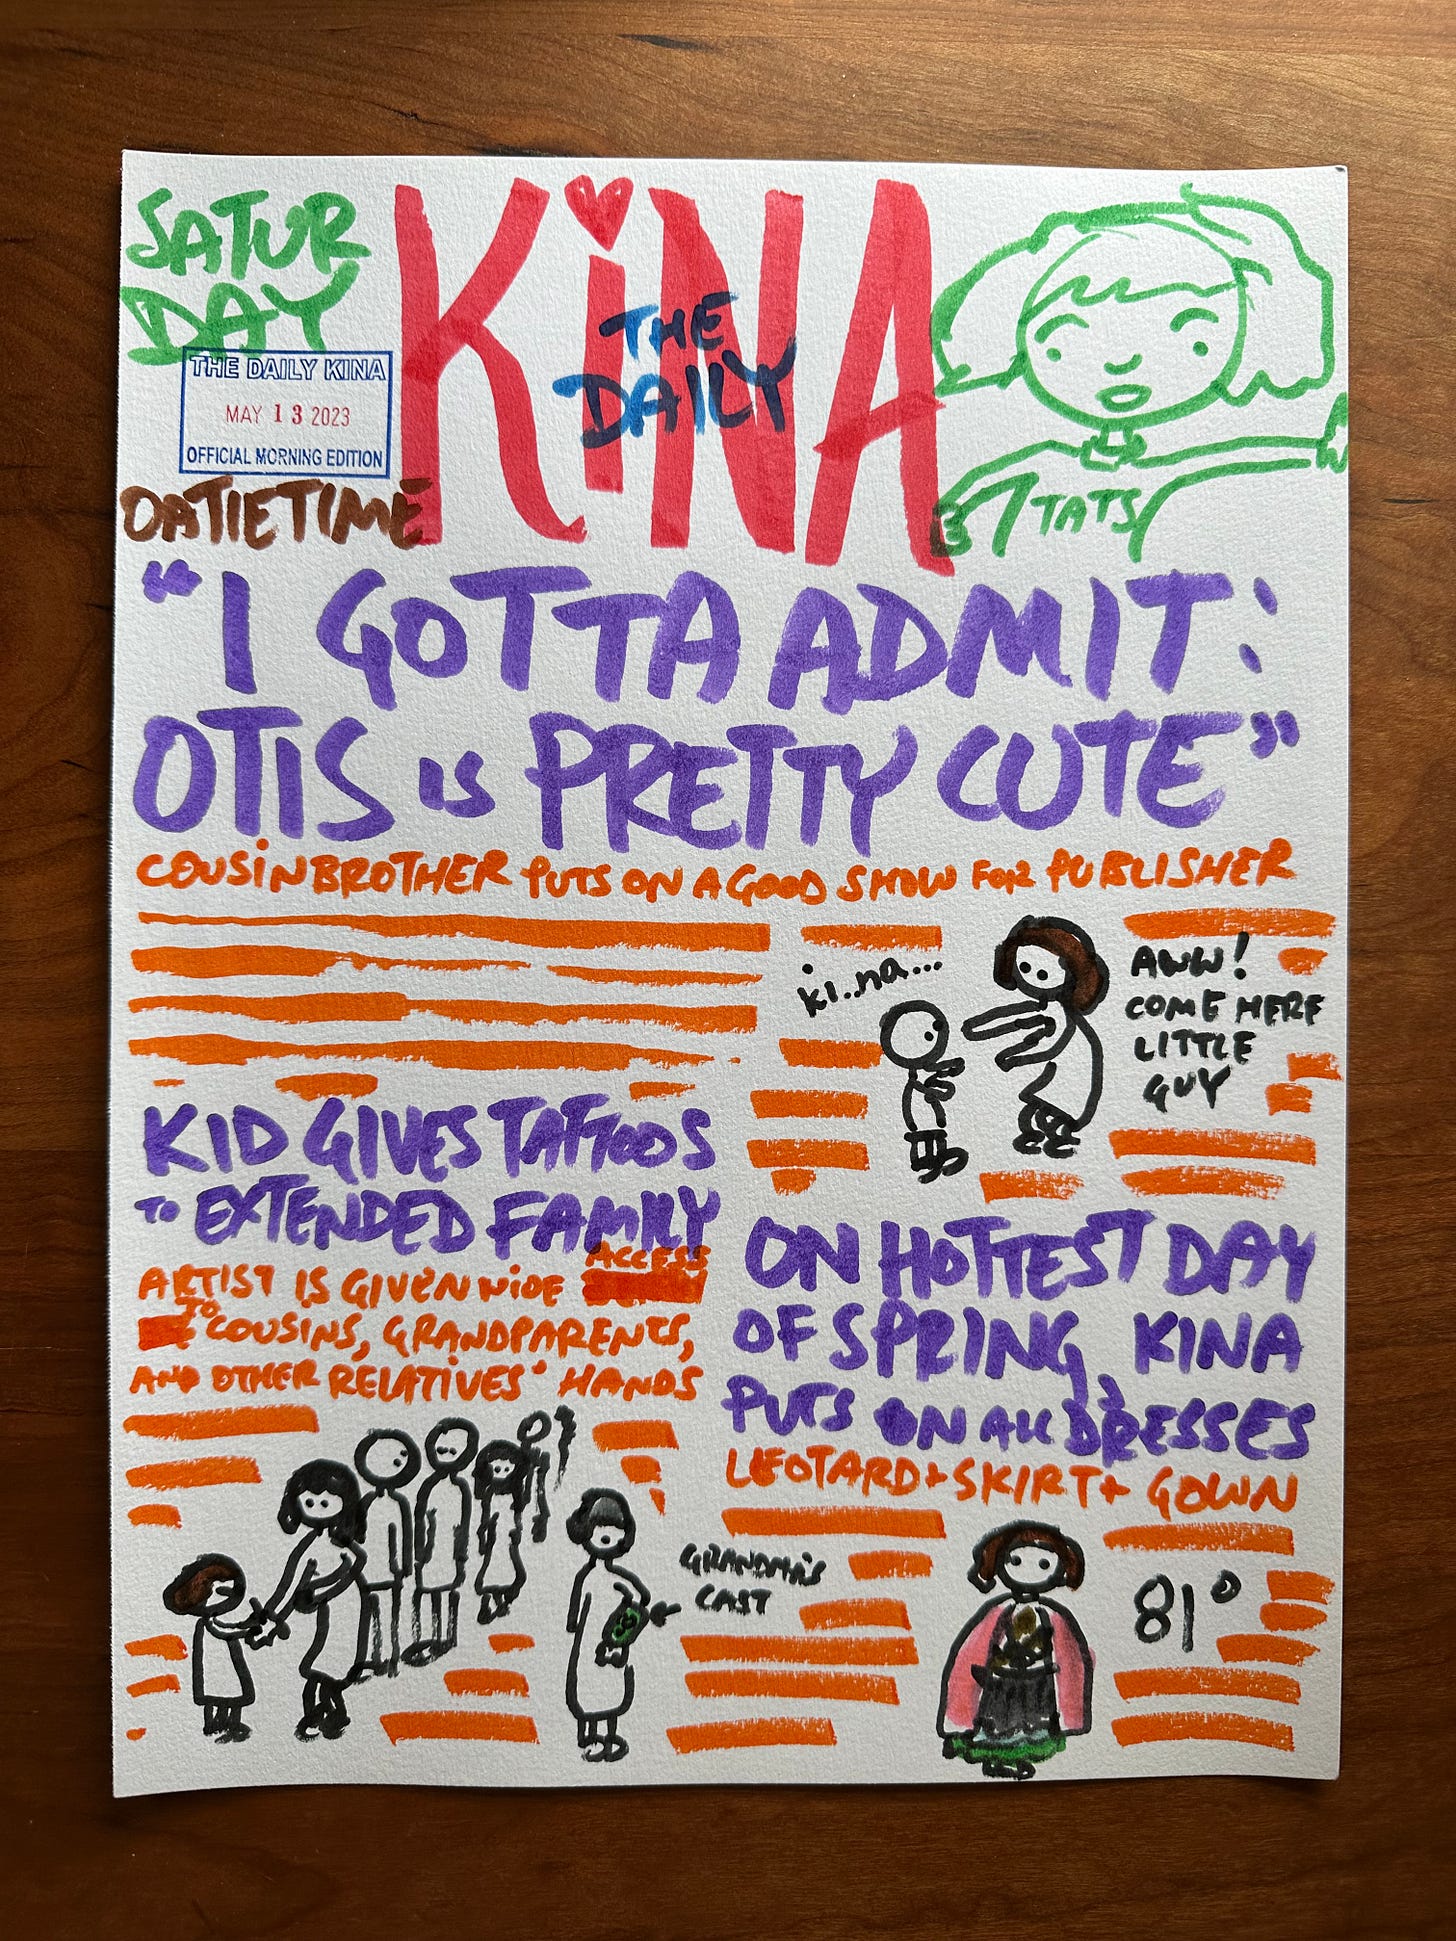 SATUR
DAY
KiNA
THE
DAILY
THE DAILY KINA
MAY 13 2023
OFFICIAL MORNING EDITION
TATS
"I GOTTA ADMIT:
OTIS is PRETTY CUTE"
COUSINBROTHER PUTS ON A GOOD SHOW FOR PUBLISHER
ki..na...
AWW!
COME HERE
LITTLE
GUY
KID GIVES TATTOOS
TO EXTENDED FAMILY
ARTIST IS GIVEN WIDE ACCESS
TO COUSINS, GRANDPARENTS,
AND OTHER RELATIVES' HANDS
GRANDMA'S
CAST
ON HOTTEST DAY
OF SPRING, KINA
PUTS ON ALL DRESSES
LEOTARD + SKIRT + GOWN
81°